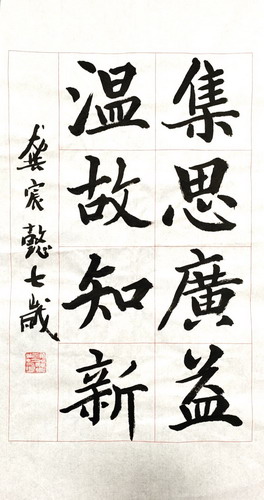 集思廣益
温故知新
龚宸懿七歲